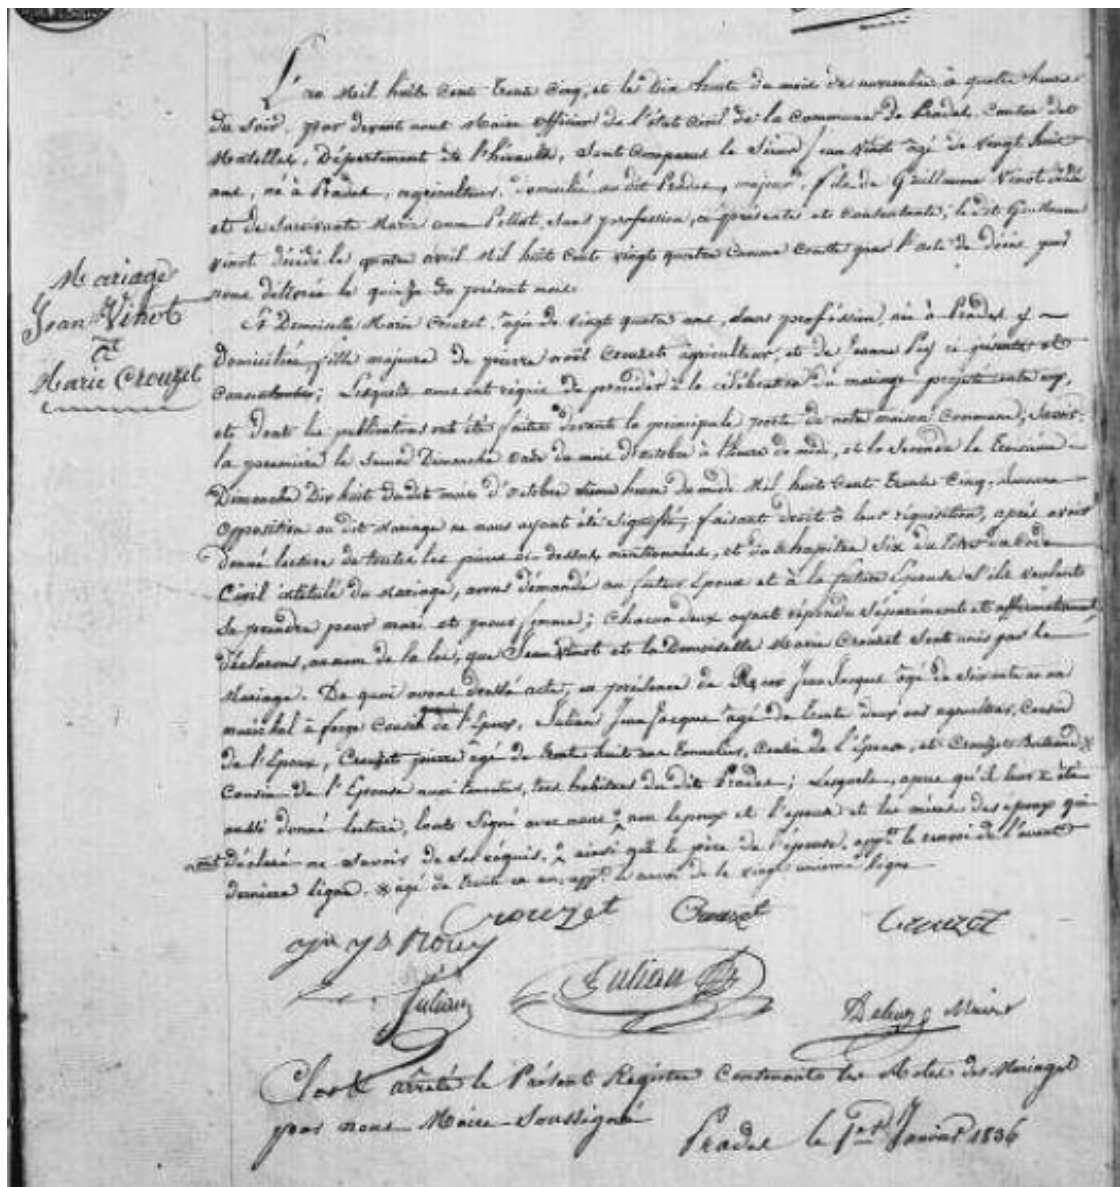 L'an Mil huit Cent Trente Cinq, et le Dix huit du mois de novembre à quatre heures
du Soir, par devant nous Maire officier de l'état Civil de la Commune de Prades, Canton des
Matelles, Département de l'hérault, Sont Comparus le Sieur Jean Vinot âgé de vingt huit
ans, né à Prades, agriculteur, domicilié au dit Prades, majeur, fils de Guillaume Vinot
et de Survivante Marie anne Pillot, sans profession, ci présente et Consentante; le dit Guillaume
vinot décédé le quatre avril Mil huit Cent vingt quatre comme Conste par l'acte de décès par
nous délivré le quinze du présent mois.
Mariage
Jean Vinot
et
Marie Crouzet
Et Demoiselle Marie Crouzet, âgée de vingt quatre ans, sans profession, née à Prades y
Domiciliée, fille majeure de pierre noël Crouzet agriculteur, et de Jeanne Puy ci présents et
Consentants; Lesquels nous ont requis de procéder à la Célébration du mariage projeté entre eux,
et dont les publications ont été faites devant la principale porte de notre maison Commune, Savoir:
la première le Second Dimanche onze du mois d'octobre à l'heure de midi, et la Seconde le Troisième
Dimanche Dix huit du dit mois d'octobre même heure de midi Mil huit Cent Trente Cinq. Aucune
Opposition au dit Mariage ne nous ayant été Signifiée, faisant droit à leur réquisition, après avoir
Donné lecture de toutes les pièces ci-dessus mentionnées, et du Chapitre Six du Titre du Code
Civil intitulé du Mariage, avons demandé au futur Epoux et à la future Epouse s'ils veulent
Se prendre pour mari et pour femme; Chacun deux ayant répondu Séparément et affirmativement,
Déclarons, au nom de la loi, que Jean Vinot et la Demoiselle Marie Crouzet Sont unis par le
Mariage. De quoi avons dressé acte, en présence de Jean Jacques âgé de Soixante un an
maréchal à forge Cousin de l'Epoux, Julian Jean Jacques âgé de Trente deux ans agriculteur, Cousin
de l'Epoux, Crouzet pierre âgé de Trente huit ans Tonnelier, Cousin de l'épouse, et Crouzet Bertrand
Cousin de l'Epouse aussi, tous habitans du dit Prades; Lesquels, après qu'il leur a été
aussi donné lecture, l'ont Signé avec nous non l'epoux et l'epouse et les mères des époux qui
ont Déclaré ne Savoir de ce requis. ainsi que le père de l'épouse, app.té le renvoi de l'avant
dernière ligne. âgé de Trente un an, app.té le renvoi de la vingt unième ligne
Crouzet Crouzet Crouzet
Julian Julian
Maire
Clos & arrêté le Présent Registre Contenant les Actes de Mariages
par nous Maire Soussigné
Prades le 1er Janvier 1836